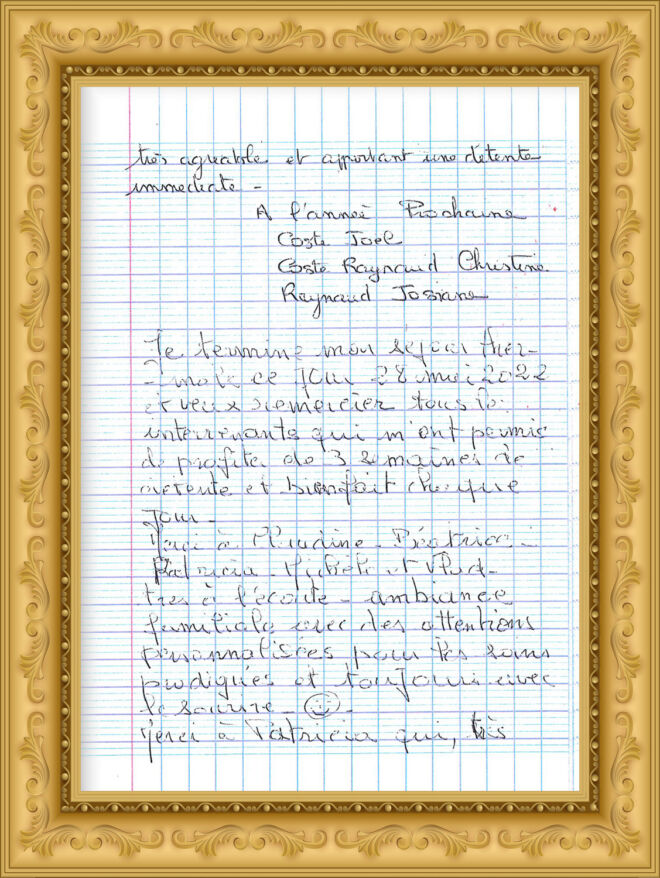 très agreable et apportant une détente
immediate -
A l'année Prochaine
Coste Joel
Coste Raynaud Christine
Raynaud Josiane
Je termine mon séjour ther-
- male ce jour 28 mai 2022
et veux remercier tous les
intervenants qui m'ont permis
de profiter de 3 semaines de
detente et bienfait chaque
jour -
Merci à Claudine - Béatrice -
Patricia - et Vlad -
très à l'écoute - ambiance
familiale avec des attentions
personnalisées pour les soins
prodigués et toujours avec
le sourire -
Merci à Patricia qui, très